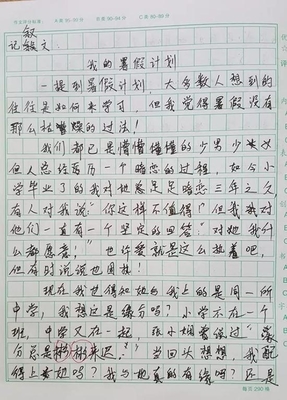 叙
记叙文：
我的暑假计划
一提到暑假计划，大多数人想到的
往往是如何来学习，但我觉得暑假没有
那么枯燥的过法！
我们都已是懵懵懂懂的少男少女
但人总经历一个暗恋的过程，如今小
学毕业了的我对她足足暗恋三年之久
有人对我说“你这样不值得”但我对
他们一直有一个坚定的回答“对她我什
么都愿意！”也许爱就是这么执着吧，
但有时说说也困扰
现在我已得知她与我上的是同一所
中学，我想这是缘分吗？小学不在一个
班，中学又在一起，张小娴曾说过“缘
分总是彬彬来迟。”当回头想想，我配
得上她吗？我与她真的有缘吗？还是
每页250格